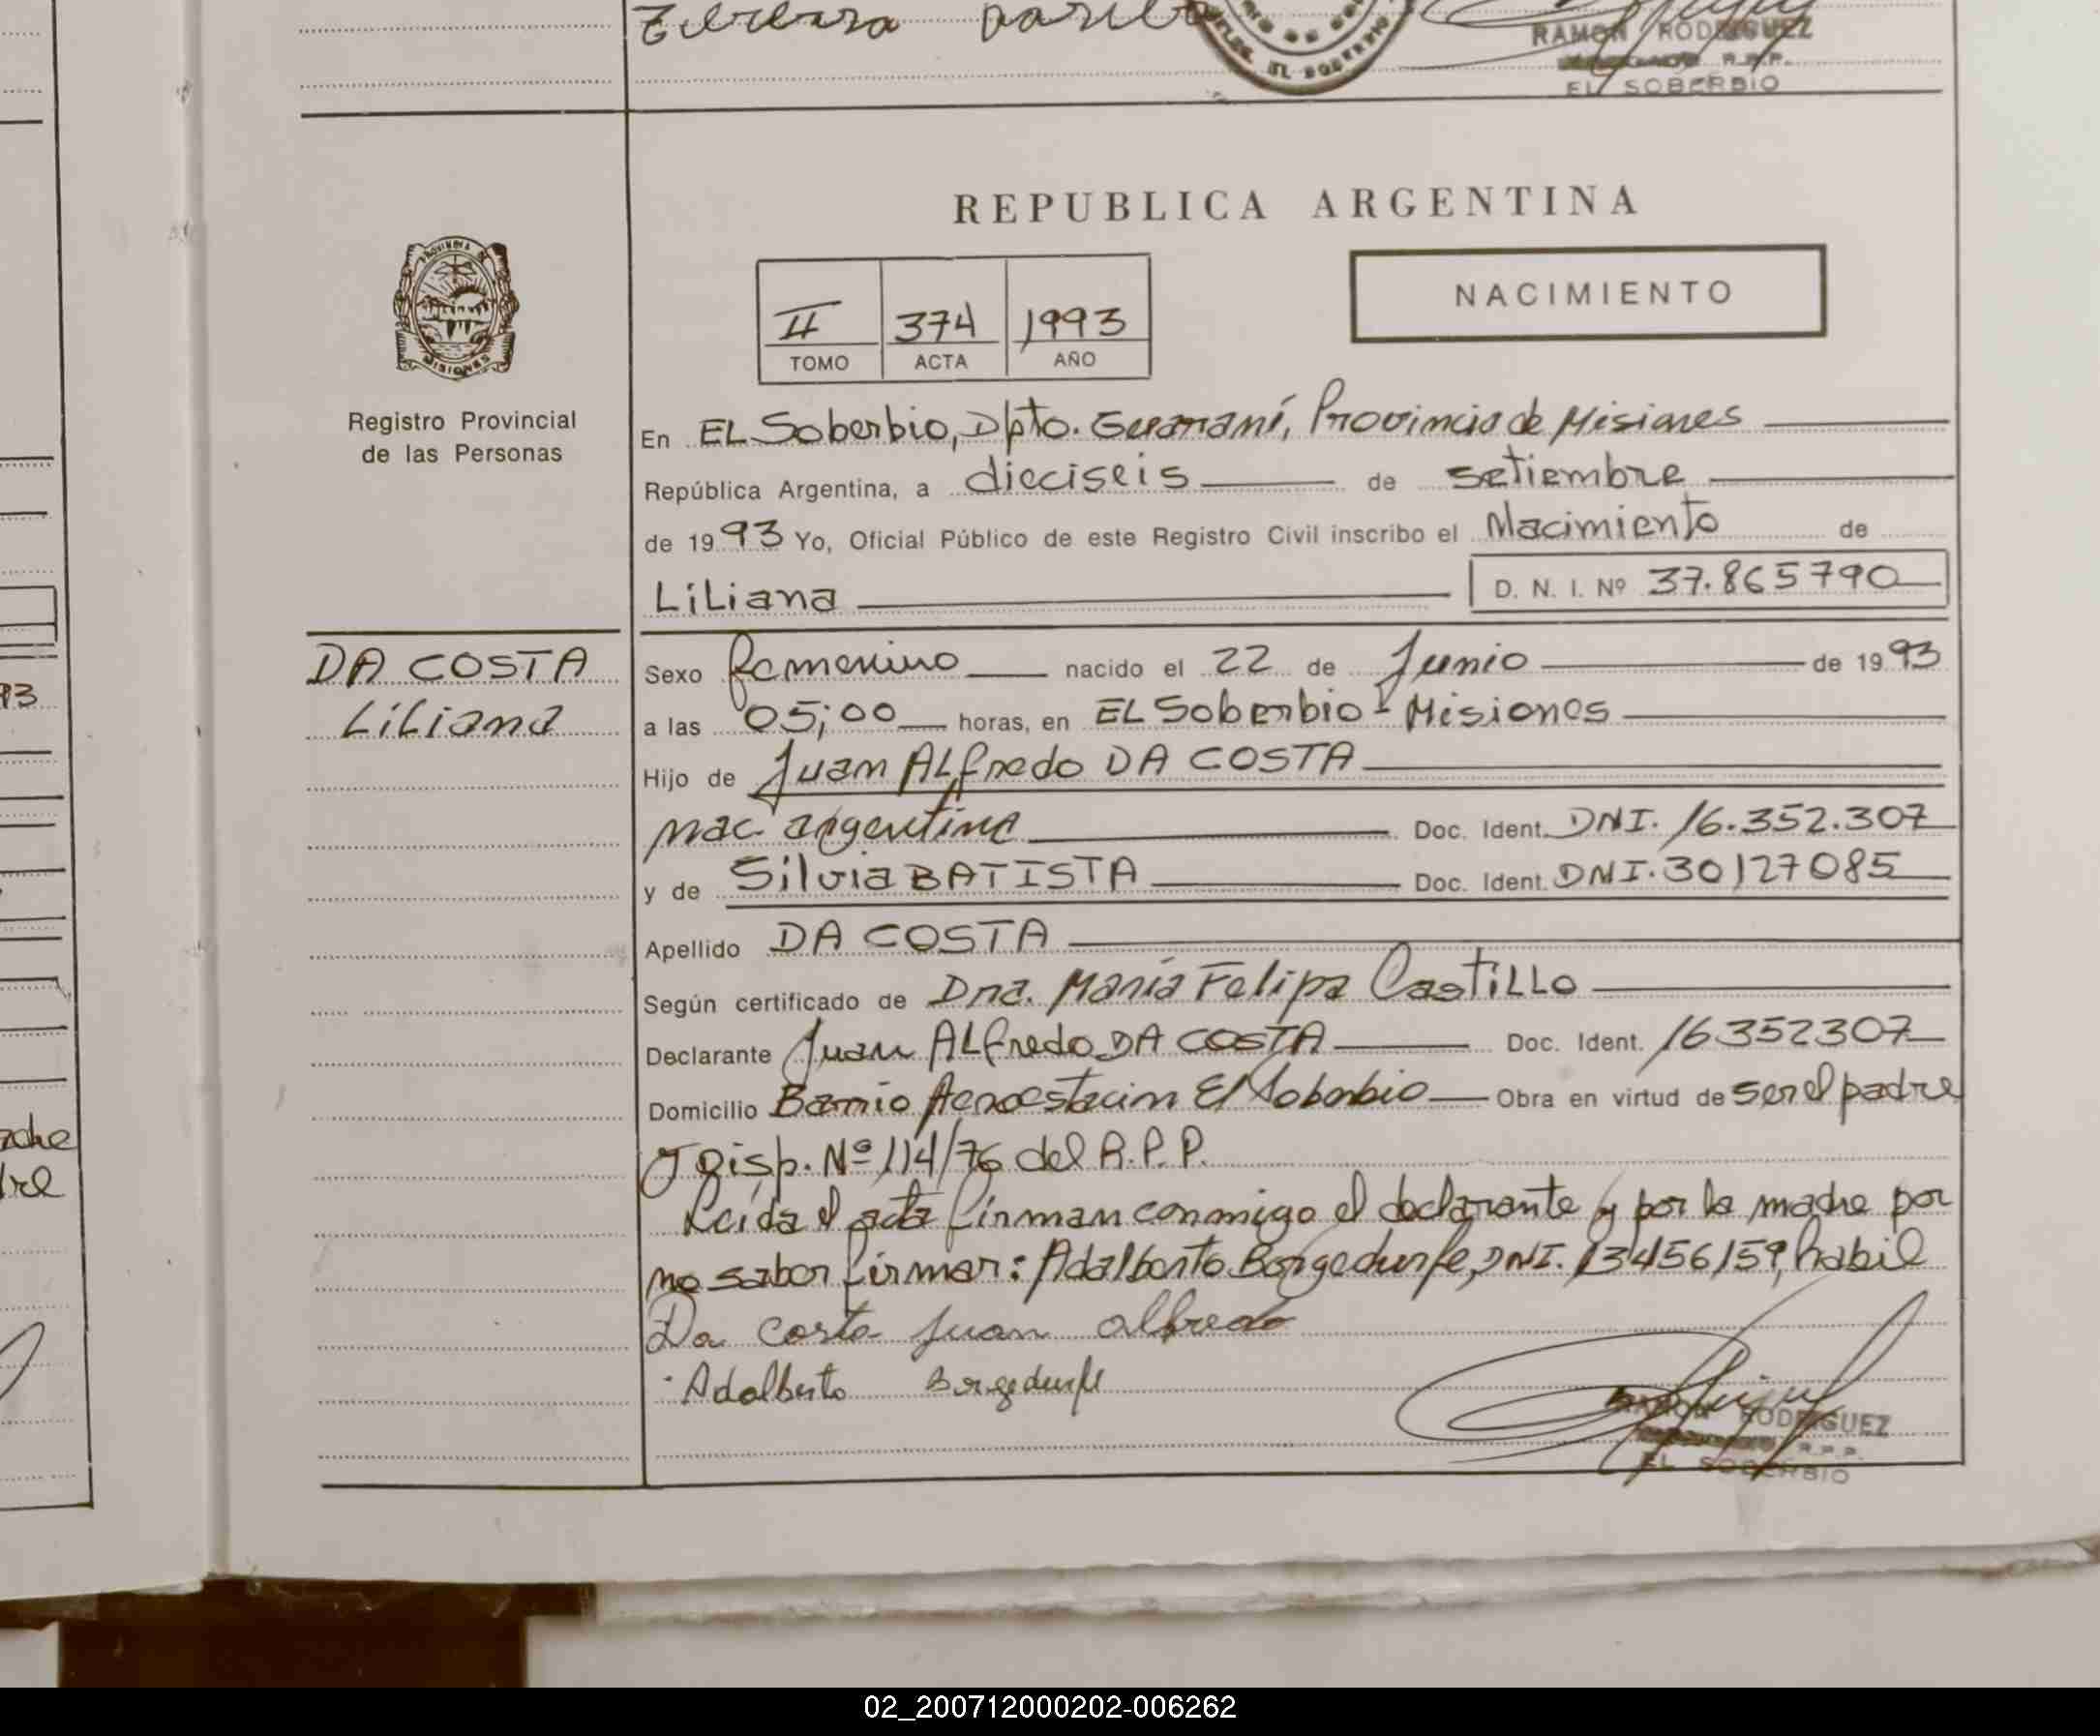 RAMON RODRIGUEZ
R.P.P.
EL SOBERBIO
REPUBLICA ARGENTINA
NACIMIENTO
II 374 1993
TOMO ACTA AÑO
PROVINCIA DE
MISIONES
Registro Provincial
de las Personas
En EL Soberbio, Dpto. Guaraní, Provincia de Misiones
República Argentina, a dieciseis de setiembre
de 1993 Yo, Oficial Público de este Registro Civil inscribo el Nacimiento de
LiLiana D. N. I. Nº 37.865790
DA COSTA
LiLiana
Sexo femenino nacido el 22 de Junio de 1993
a las 05;00 horas, en EL Soberbio - Misiones
Hijo de Juan ALfredo DA COSTA
nac argentina Doc. Ident. DNI. 16.352.307
y de Silvia BATISTA Doc. Ident. DNI. 30127085
Apellido DA COSTA
Según certificado de Dra. María Felipa CastiLLo
Declarante Juan ALfredo DA COSTA Doc. Ident. 16352307
Domicilio Barrio Aeroestacion El Soberbio Obra en virtud de ser el padre
y Disp. Nº 114/76 del R.P.P.
Leida el acta firman conmigo el declarante y por la madre por
no saber firmar: Adalberto Borgedurfe, DNI. 13456159, habil
Da costa juan alfredo
Adalberto Borgedurfe
RAMON RODRIGUEZ
R.P.P.
EL SOBERBIO
02_200712000202-006262